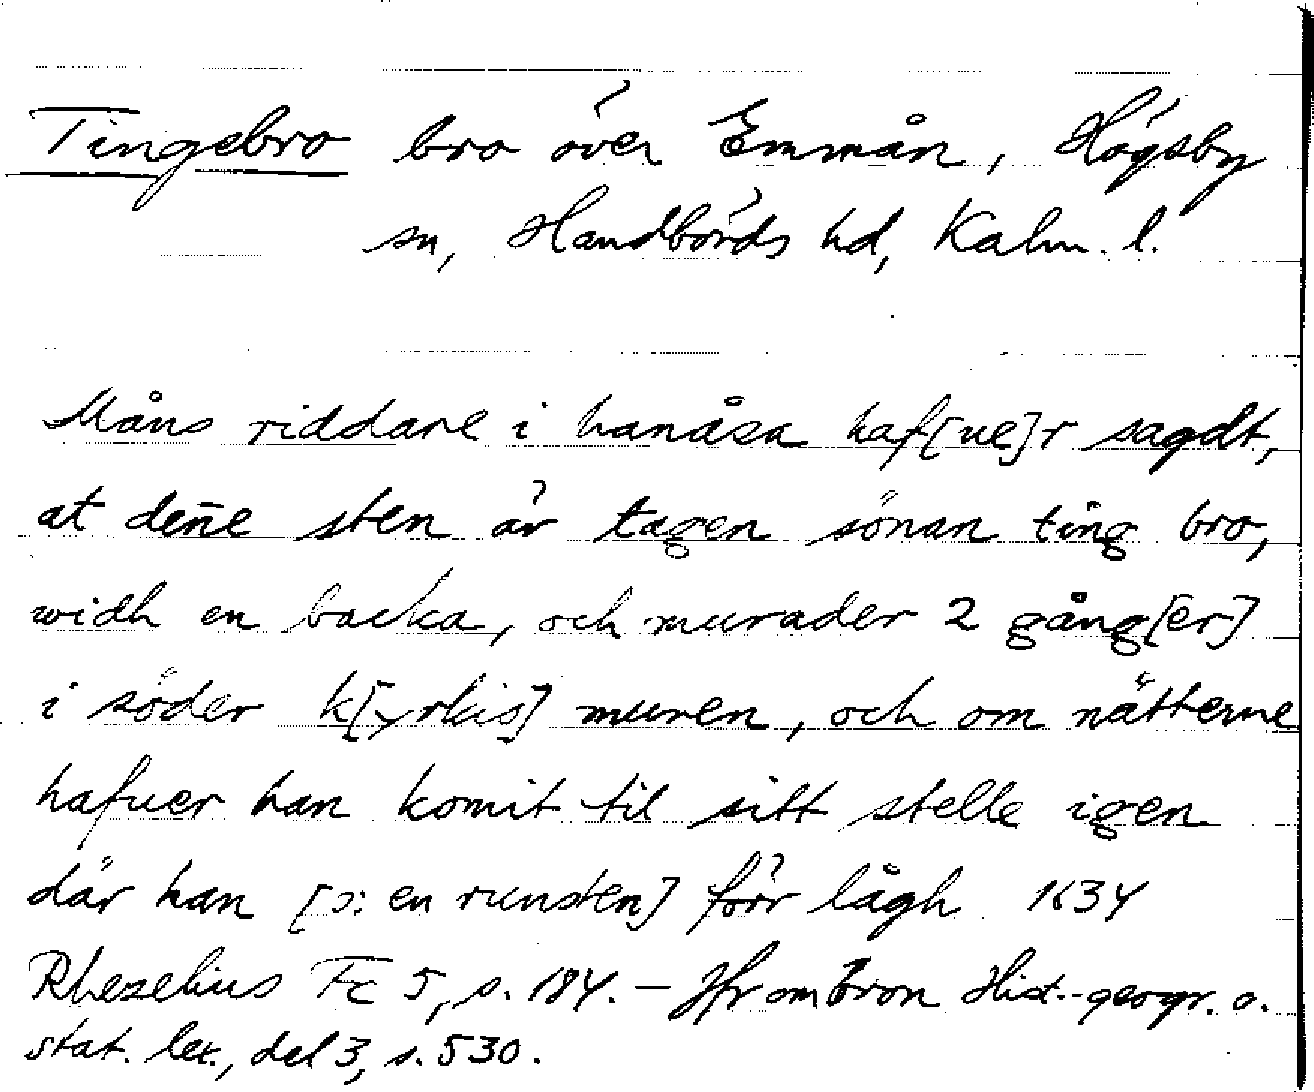 Tingebro bro över Emmån, Högsby
sn, Handbörds hd, Kalm. l.
Måns riddare i hanåsa haf[ue]r sagdt,
at den̄e sten är tagen sönan ting bro,
widh en backa, och murader 2 gång[er]
i söder k[yrkis] muren, och om nätterne
hafuer han komit til sitt stelle igen
där han [ɔ: en runsten] förr lågh 1634
Rhezelius Fc 5, s. 184. – Jfr om bron Hist.-geogr. o.
stat. lex., del 3, s. 530.